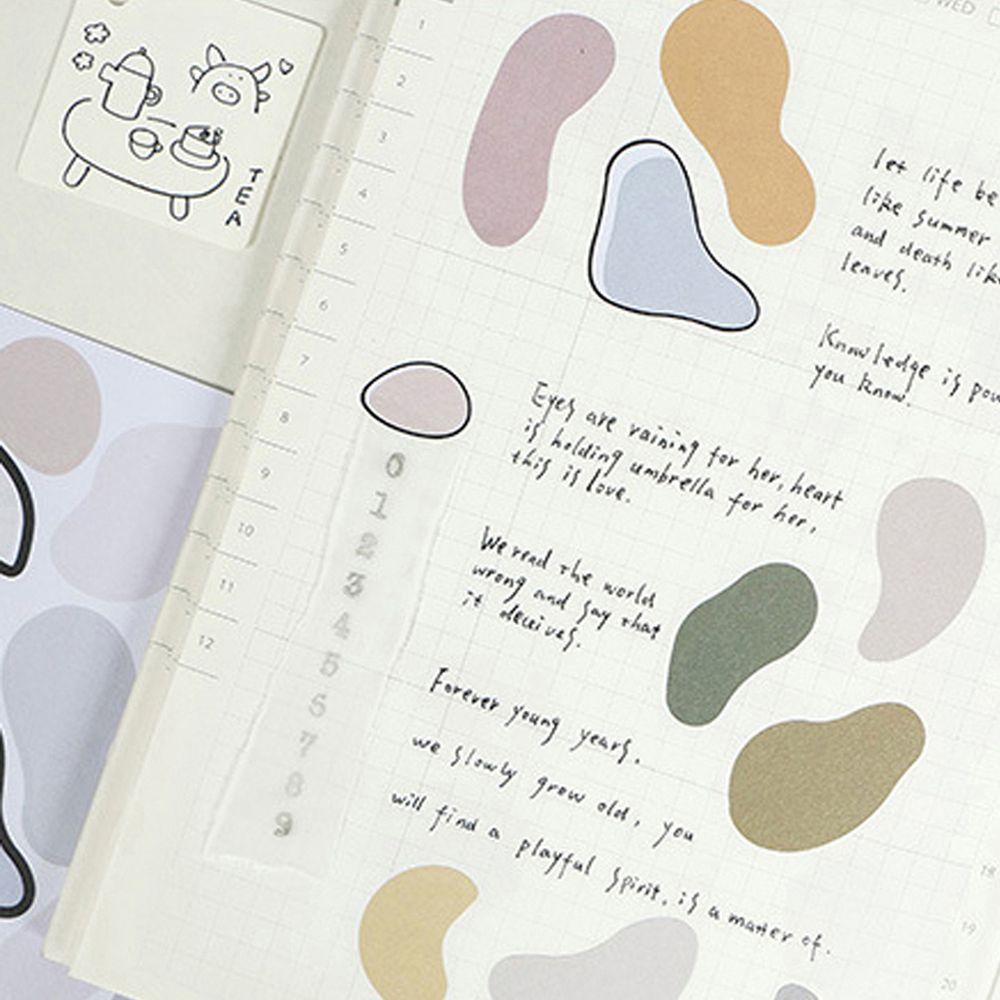 WED
TEA
1
2
3
4
5
6
7
8
9
10
11
12
let life be
like summer
and death like
leaves.
Knowledge is
you know.
Eyes are raining for her, heart
is holding umbrella for her,
this is love.
0
1
2
3
4
5
6
7
8
9
We read the world
wrong and say that
it deceives.
Forever young years,
we slowly grow old, you
will find a playful spirit, is a matter of.
18
19
20